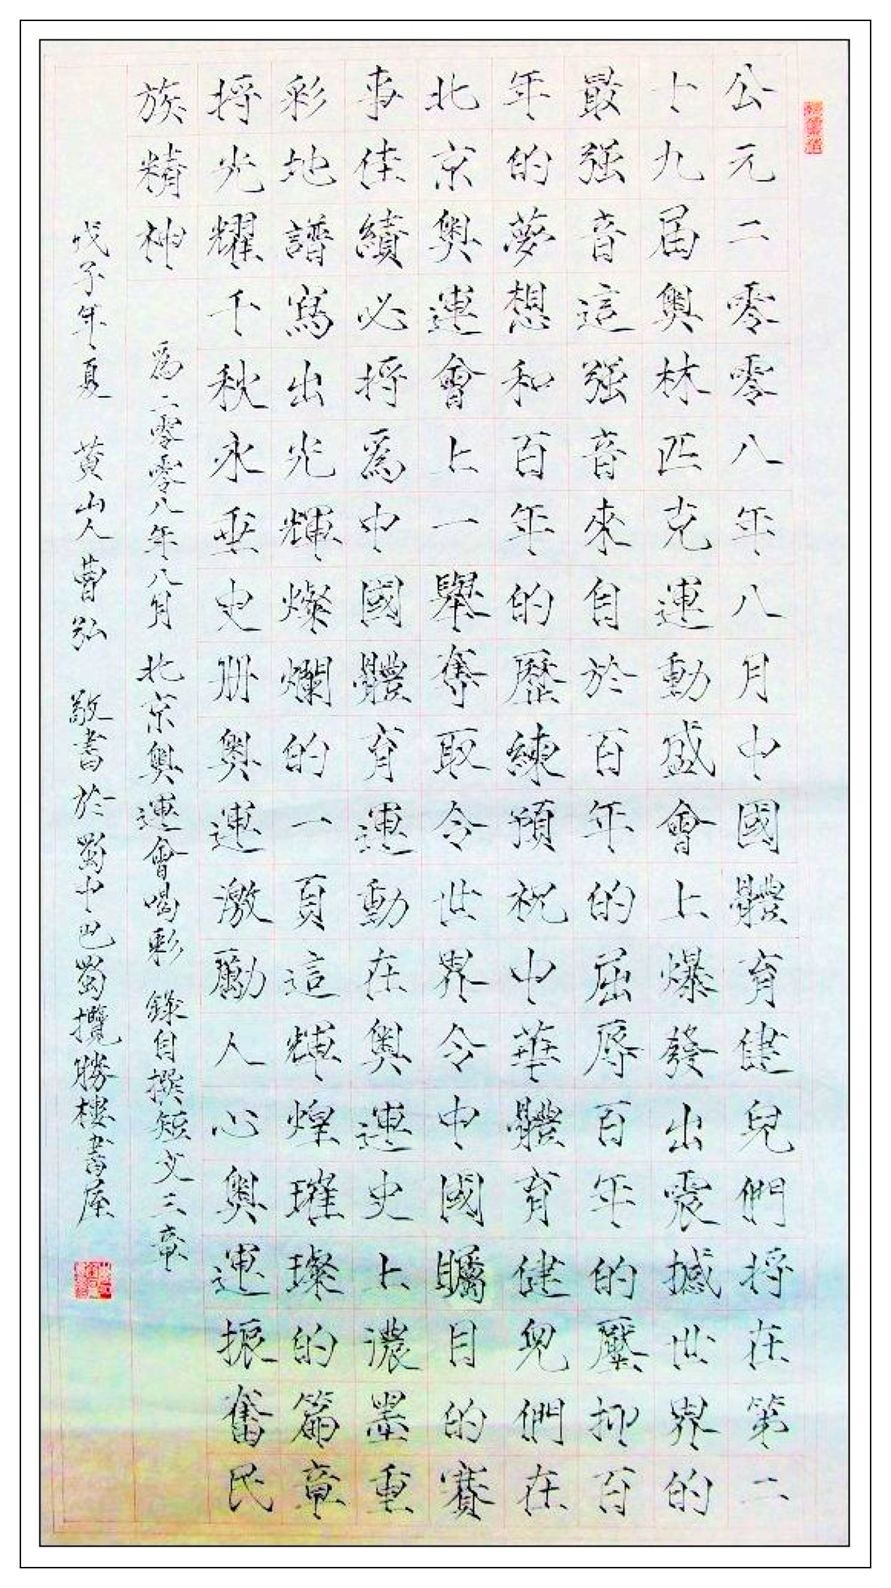 公元二零零八年八月中國體育健兒們将在第二
十九届奥林匹克運動盛會上爆發出震撼世界的
最强音這强音來自於百年的屈辱百年的壓抑百
年的夢想和百年的歷練預祝中華體育健兒們在
北京奥運會上一舉奪取令世界令中國矚目的賽
事佳績必将爲中國體育運動在奥運史上濃墨重
彩地譜寫出光輝燦爛的一頁這輝煌璀璨的篇章
将光耀千秋永垂史册奥運激勵人心奥運振奮民
族精神
爲二零零八年八月北京奥運會喝彩 錄自撰短文三章
戊子年夏 黄山人曹弘 敬書於蜀中巴蜀攬勝樓書屋